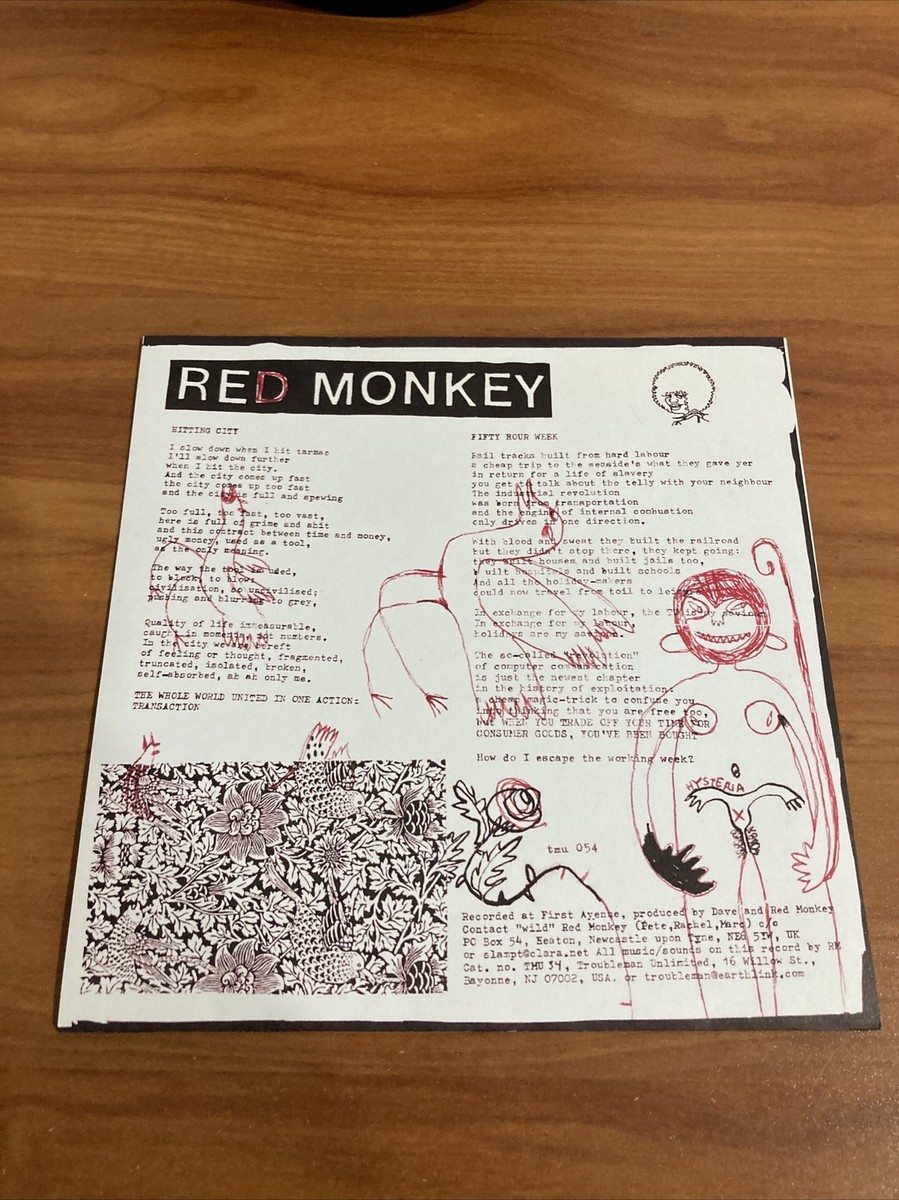 RED MONKEY
HITTING CITY
I slow down when I hit tarmac
I'll slow down further
when I hit the city.
And the city comes up fast
the city comes up too fast
and the city is full and spewing
Too full, too fast, too vast,
here is full of grime and shit
and this contract between time and money,
ugly money, used as a tool,
as the only meaning.
The way the tool is used,
to block, to blow;
civilisation, so uncivilised;
pushing and blurring to grey,
Quality of life immeasurable,
caught in moments not numbers.
In the city we are bereft
of feeling or thought, fragmented,
truncated, isolated, broken,
self-absorbed, ah ah only me.
THE WHOLE WORLD UNITED IN ONE ACTION:
TRANSACTION
FIFTY HOUR WEEK
Rail tracks built from hard labour
a cheap trip to the seaside's what they gave yer
in return for a life of slavery
you get to talk about the telly with your neighbour
The industrial revolution
was born from transportation
and the engine of internal combustion
only drives in one direction.
With blood and sweat they built the railroad
but they didn't stop there, they kept going:
they built houses and built jails too,
built hospitals and built schools
And all the holiday-makers
could now travel from toil to leisure
In exchange for my labour, the TV is my saviour
In exchange for my labour,
holidays are my saviour.
The so-called "revolution"
of computer communication
is just the newest chapter
in the history of exploitation:
a cheap magic-trick to confuse you
into thinking that you are free too,
but WHEN YOU TRADE OFF YOUR TIME FOR
CONSUMER GOODS, YOU'VE BEEN BOUGHT
How do I escape the working week?
HYSTERIA
tmu 054
Recorded at First Avenue, produced by Dave and Red Monkey
Contact "wild" Red Monkey (Pete,Rachel,Marc) c/o
PO Box 54, Heaton, Newcastle upon Tyne, NE6 5YW, UK
or slampt@clara.net All music/sounds on this record by RM
Cat. no. TMU 54, Troubleman Unlimited, 16 Willow St.,
Bayonne, NJ 07002, USA. or troubleman@earthlink.com